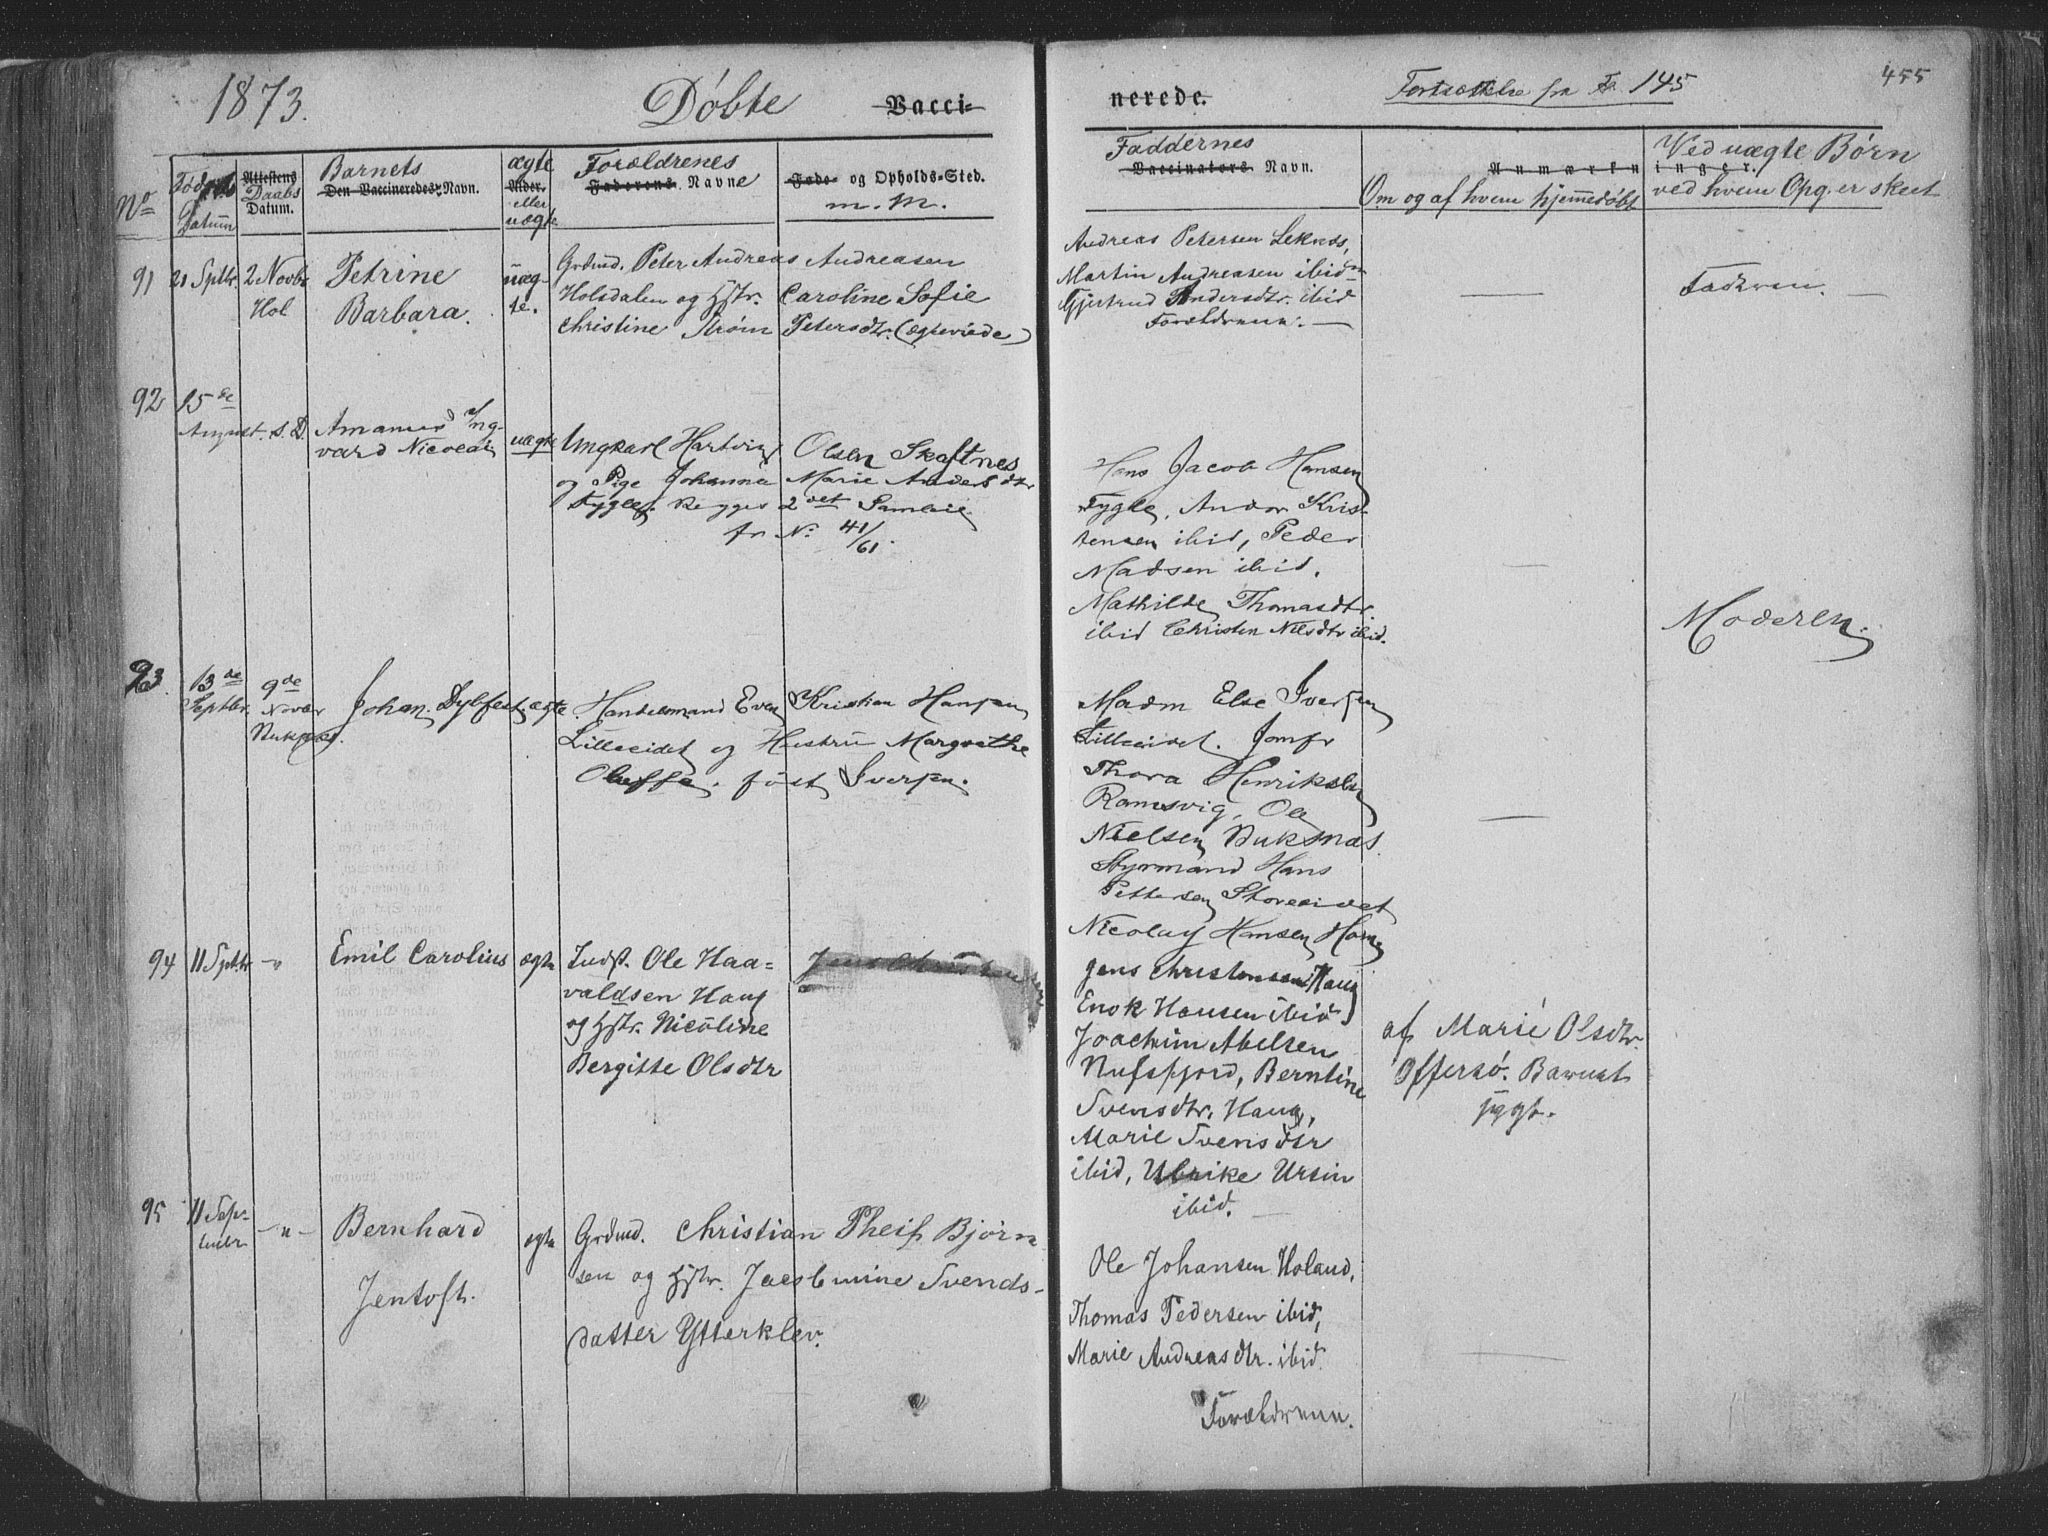 1873. Døbte Vacci-
nerede. Fortsættelse fra Fo. 145 455
No
Fødsels Datum
Attestens
Daabs
Datum.
Barnets
Den Vaccineredes Navn.
ægte
Alder.
eller
uægte
Forældrenes
Faderens Navne
Føde- og Opholds-Sted.
m.m.
Faddernes
Vaccinators Navn.
Anmærkninger.
Om og af hvem hjemmedøbt
Ved uægte Børn
ved hvem Opg. er skeet
91 21 Septbr. 2 Novbr
Hol
Petrine
Barbara.
uæg-
te.
Grdmd. Peter Andreas Andreasen
Holsdalen og Hstr. Caroline Sofie
Christine Strøm Petersdtr. (ægteviede)
Andreas Petersen Leknes,
Martin Andreasen ibidm
Gjertrud Andersdtr. ibid
Forældrene. —
—
Faderen. —
92 15de
August. s. D.
Amandus Ing-
vard Nicolai
uægte
Ungkarl Hartvig Olsen Skaftnes
og Pige Johanna Marie Andersdtr
Fygle. Begges 2det Samleie
fr No. 41/61.
Hans Jacob Hansen
Fygle, Andor Kris-
tensen ibid, Peder
Madsen ibid.
Mathilde Thomasdtr
ibid Christen Nilsdtr ibid.
—
Moderen.
93 13de
Septbr.
9de
Novbr
Buksnæs.
Johan Dybfest
ægte.
Handelsmand Even Kristian Hansen
Lilleeidet og Hustru Margrethe
Oluffa. født Iversen.
Madm Else Iversen
Lilleeidet. Jomfr
Thora Henriksen
Ramsvig, Ole
Nielsen Buksnæs.
Styrmand Hans
Pettersen Storeeidet
Nicolay Hansen
—
94 11 Septbr -"-
Emil Carolius
ægte
Indst. Ole Haa-
valdsen Haug
og Hstr. Nicoline
Bergitte Olsdtr
Jens Christensen
Jens Christensen Haug
Enok Hansen ibid
Joachim Abelsen
Nufsfjord, Berntine
Svensdtr. Haug,
Marie Svensdtr
ibid, Ulrike Ursin
ibid. —
af Marie Olsdtr.
Offersø. Barnet
sygt.
95 11 Sep-
tember
-"-
Bernhard
Jentoft.
ægte
Grdmd. Christian Theis Bjørn
sen og Hstr. Jacobmine Svends-
datter Ytterklev.
Ole Johansen Holand,
Thomas Pedersen ibid,
Marie Andreasdtr. ibid.
Forældrene.
—